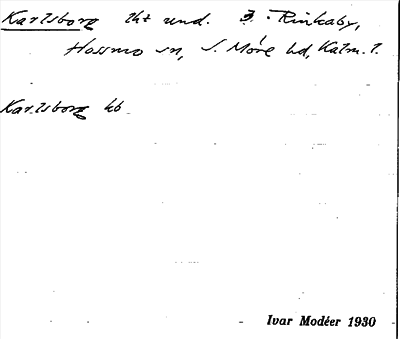 Karlsborg lht und. 3 Rinkaby,
Hossmo sn, S. Möre hd, Kalm. l.
Karlsborg kb
Ivar Modéer 1930